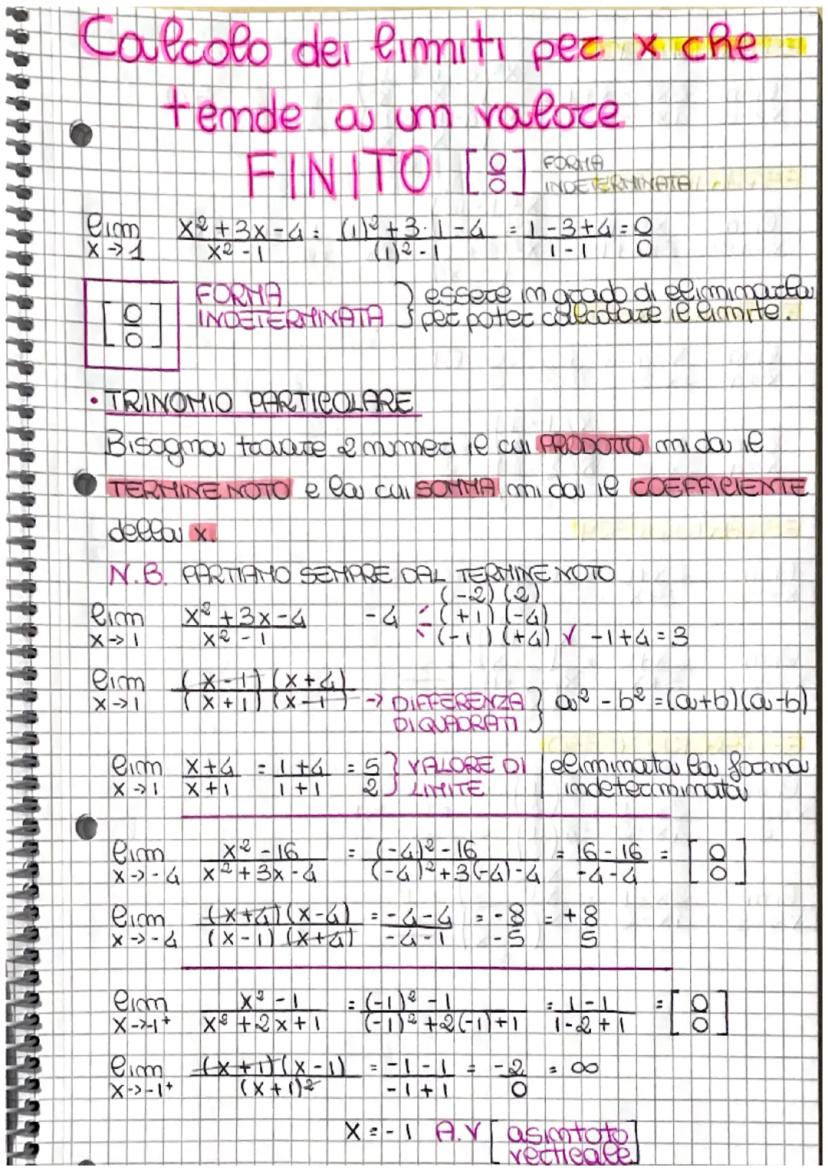 Calcolo dei limiti per x che
tende a un valore
FINITO [0/0] FORMA
INDETERMINATA
lim x→1 x²+3x-4 / x²-1 = (1)²+3·1-4 / (1)²-1 = 1-3+4 / 1-1 = 0/0
[0/0] FORMA INDETERMINATA } essere in grado di eliminarla
per poter calcolare il limite.
• TRINOMIO PARTICOLARE
Bisogna trovare 2 numeri il cui PRODOTTO mi da il
TERMINE NOTO e la cui SOMMA mi da il COEFFICIENTE
della x.
N.B. PARTIAMO SEMPRE DAL TERMINE NOTO
(-2) (2)
lim x→1 x²+3x-4 / x²-1 -4 (+1) (-4)
(-1) (+4) ✓ -1+4=3
lim x→1 (x-1)(x+4) / (x+1)(x-1) → DIFFERENZA DI QUADRATI } a²-b²=(a+b)(a-b)
lim x→1 x+4 / x+1 = 1+4 / 1+1 = 5/2 } VALORE DI LIMITE | eliminata la forma indeterminata
lim x→-4 x²-16 / x²+3x-4 = (-4)²-16 / (-4)²+3(-4)-4 = 16-16 / -4-4 = [0/0]
lim x→-4 (x+4)(x-4) / (x-1)(x+4) = -4-4 / -4-1 = -8 / -5 = +8/5
lim x→-1⁺ x²-1 / x²+2x+1 = (-1)²-1 / (-1)²+2(-1)+1 = 1-1 / 1-2+1 = [0/0]
lim x→-1⁺ (x+1)(x-1) / (x+1)² = -1-1 / -1+1 = -2/0 = ∞
x=-1 A.V [asintoto verticale]